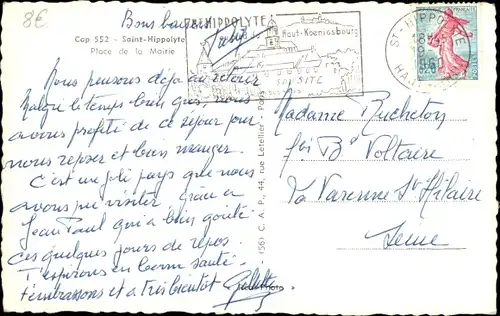 8€
Bons baisers
Cap 552 - Saint-Hippolyte
Place de la Mairie
ST HIPPOLYTE
Haut-Koenigsbourg
SON SITE
ST-HIPPOLYTE
18
HAUT
0,20
Nous pensons déjà au retour
Malgré le temps bien gris, nous
avons profité de ce séjour pour
nous reposer et bien manger.
C'est un joli pays que nous
avons pu visiter grâce à
Jean Paul qui a bien goûté
ces quelques jours de repos.
T'espérons en bonne santé.
t'embrassons et à très bientôt
1561 C. A. P., 44, rue Letellier - Paris
Madame Rucheton
Bd Voltaire
La Varenne St Hilaire
Seine